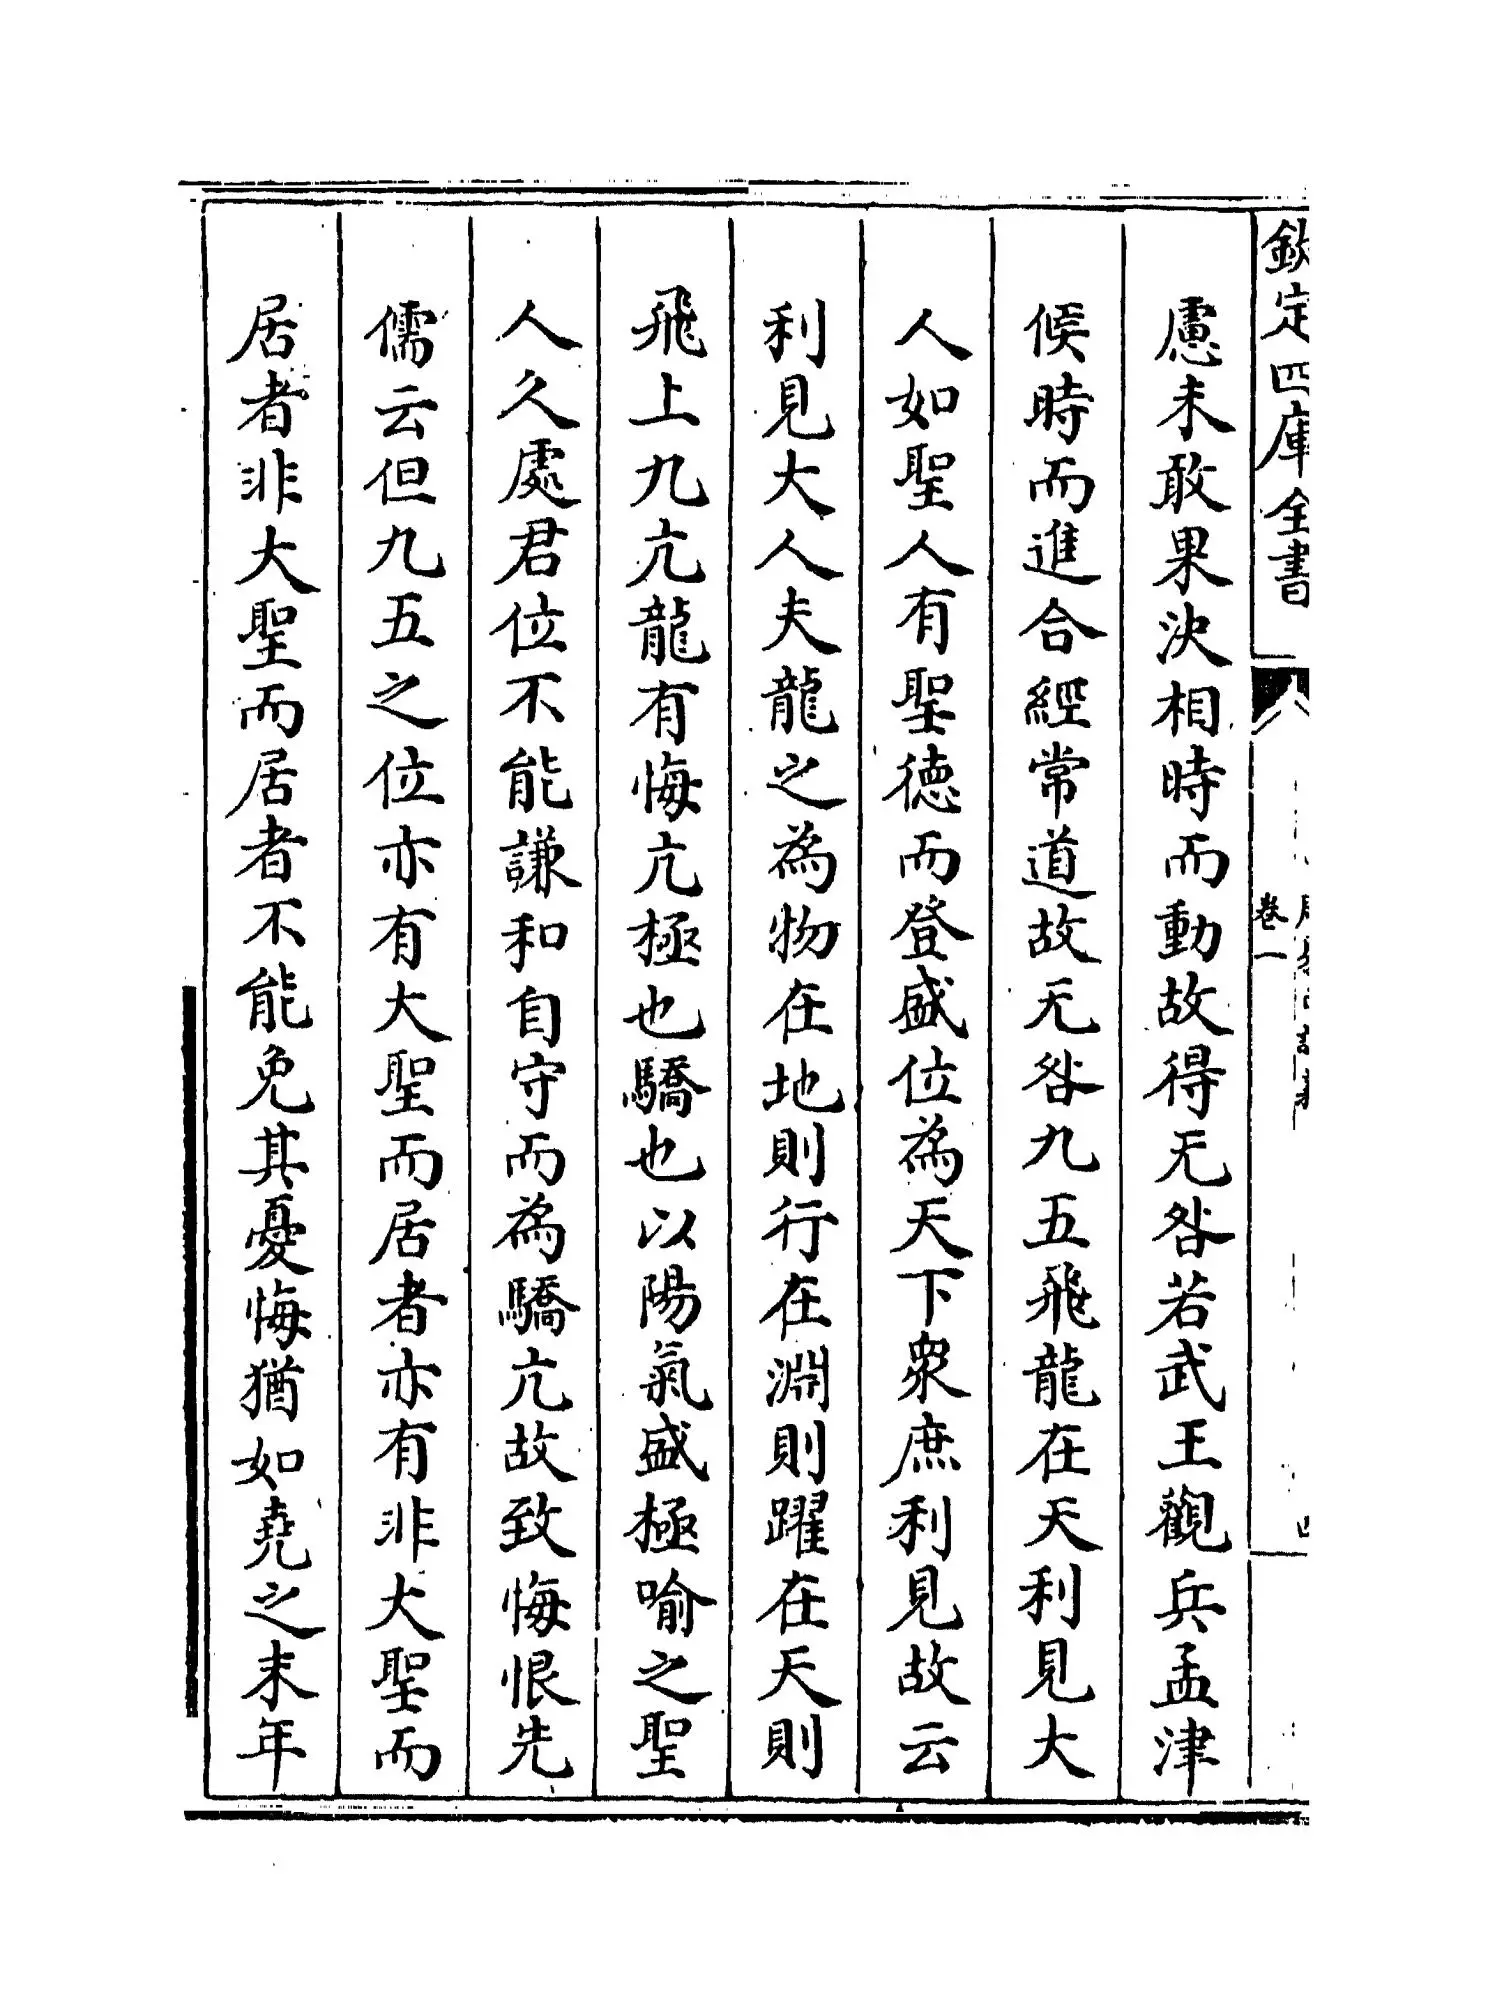 欽定四庫全書
卷一
慮未敢果決相時而動故得无咎若武王觀兵孟津
候時而進合經常道故无咎九五飛龍在天利見大
人如聖人有聖德而登盛位為天下衆庶利見故云
利見大人夫龍之為物在地則行在淵則躍在天則
飛上九亢龍有悔亢極也驕也以陽氣盛極喻之聖
人久處君位不能謙和自守而為驕亢故致悔恨先
儒云但九五之位亦有大聖而居者亦有非大聖而
居者非大聖而居者不能免其憂悔猶如堯之末年